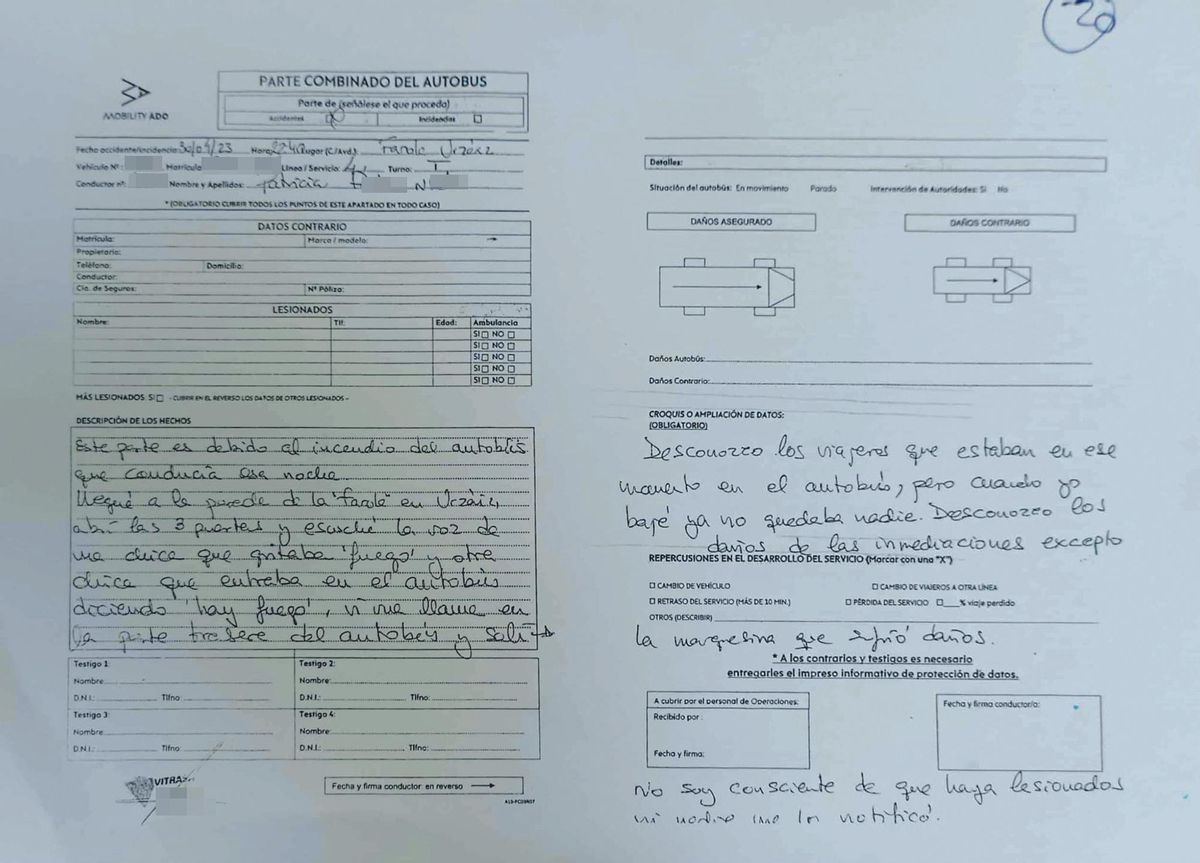 20
MOBILITY ADO
PARTE COMBINADO DEL AUTOBUS
Parte de (señálese el que proceda)
Accidentes
Incidencias ☐
Fecha accidente/incidencia: 30/04/23 Hora: Lugar (C/Avd.): Farola Urzáiz
Vehículo Nº: Matrícula Línea / Servicio: Turno:
Conductor nº: Nombre y Apellidos: Patricia
* (OBLIGATORIO CUBRIR TODOS LOS PUNTOS DE ESTE APARTADO EN TODO CASO)
DATOS CONTRARIO
Matrícula: Marca / modelo:
Propietario:
Teléfono: Domicilio:
Conductor:
Cía. de Seguros: Nº Póliza:
LESIONADOS
Nombre: Tlf: Edad: Ambulancia
SI ☐ NO ☐
SI ☐ NO ☐
SI ☐ NO ☐
SI ☐ NO ☐
SI ☐ NO ☐
MÁS LESIONADOS SI ☐ - CUBRIR EN EL REVERSO LOS DATOS DE OTROS LESIONADOS -
DESCRIPCIÓN DE LOS HECHOS
Este parte es debido al incendio del autobús
que conducía esa noche
Llegué a la parada de la "farola" en Urzáiz,
abrí las 3 puertas y escuché la voz de
una chica que gritaba 'fuego' y otra
chica que entraba en el autobús
diciendo 'hay fuego', vi una llama en
la parte trasera del autobús y salí →
Testigo 1: Testigo 2:
Nombre: Nombre:
D.N.I.: Tlfno: D.N.I.: Tlfno:
Testigo 3: Testigo 4:
Nombre: Nombre:
D.N.I.: Tlfno: D.N.I.: Tlfno:
VITRASA
Fecha y firma conductor: en reverso →
Detalles:
Situación del autobús: En movimiento Parado Intervención de Autoridades: Si No
DAÑOS ASEGURADO
DAÑOS CONTRARIO
Daños Autobús:
Daños Contrario:
CROQUIS O AMPLIACIÓN DE DATOS:
(OBLIGATORIO)
Desconozco los viajeros que estaban en ese
momento en el autobús, pero cuando yo
bajé ya no quedaba nadie. Desconozco los
daños de las inmediaciones excepto
REPERCUSIONES EN EL DESARROLLO DEL SERVICIO (Marcar con una "X")
☐ CAMBIO DE VEHÍCULO ☐ CAMBIO DE VIAJEROS A OTRA LÍNEA
☐ RETRASO DEL SERVICIO (MÁS DE 10 MIN.) ☐ PÉRDIDA DEL SERVICIO ☐ % viaje perdido
OTROS (DESCRIBIR)
la marquesina que sufrió daños.
* A los contrarios y testigos es necesario
entregarles el impreso informativo de protección de datos.
A cubrir por el personal de Operaciones:
Recibido por:
Fecha y firma:
Fecha y firma conductor/a:
No soy consciente de que haya lesionados
ni nadie me lo notificó.